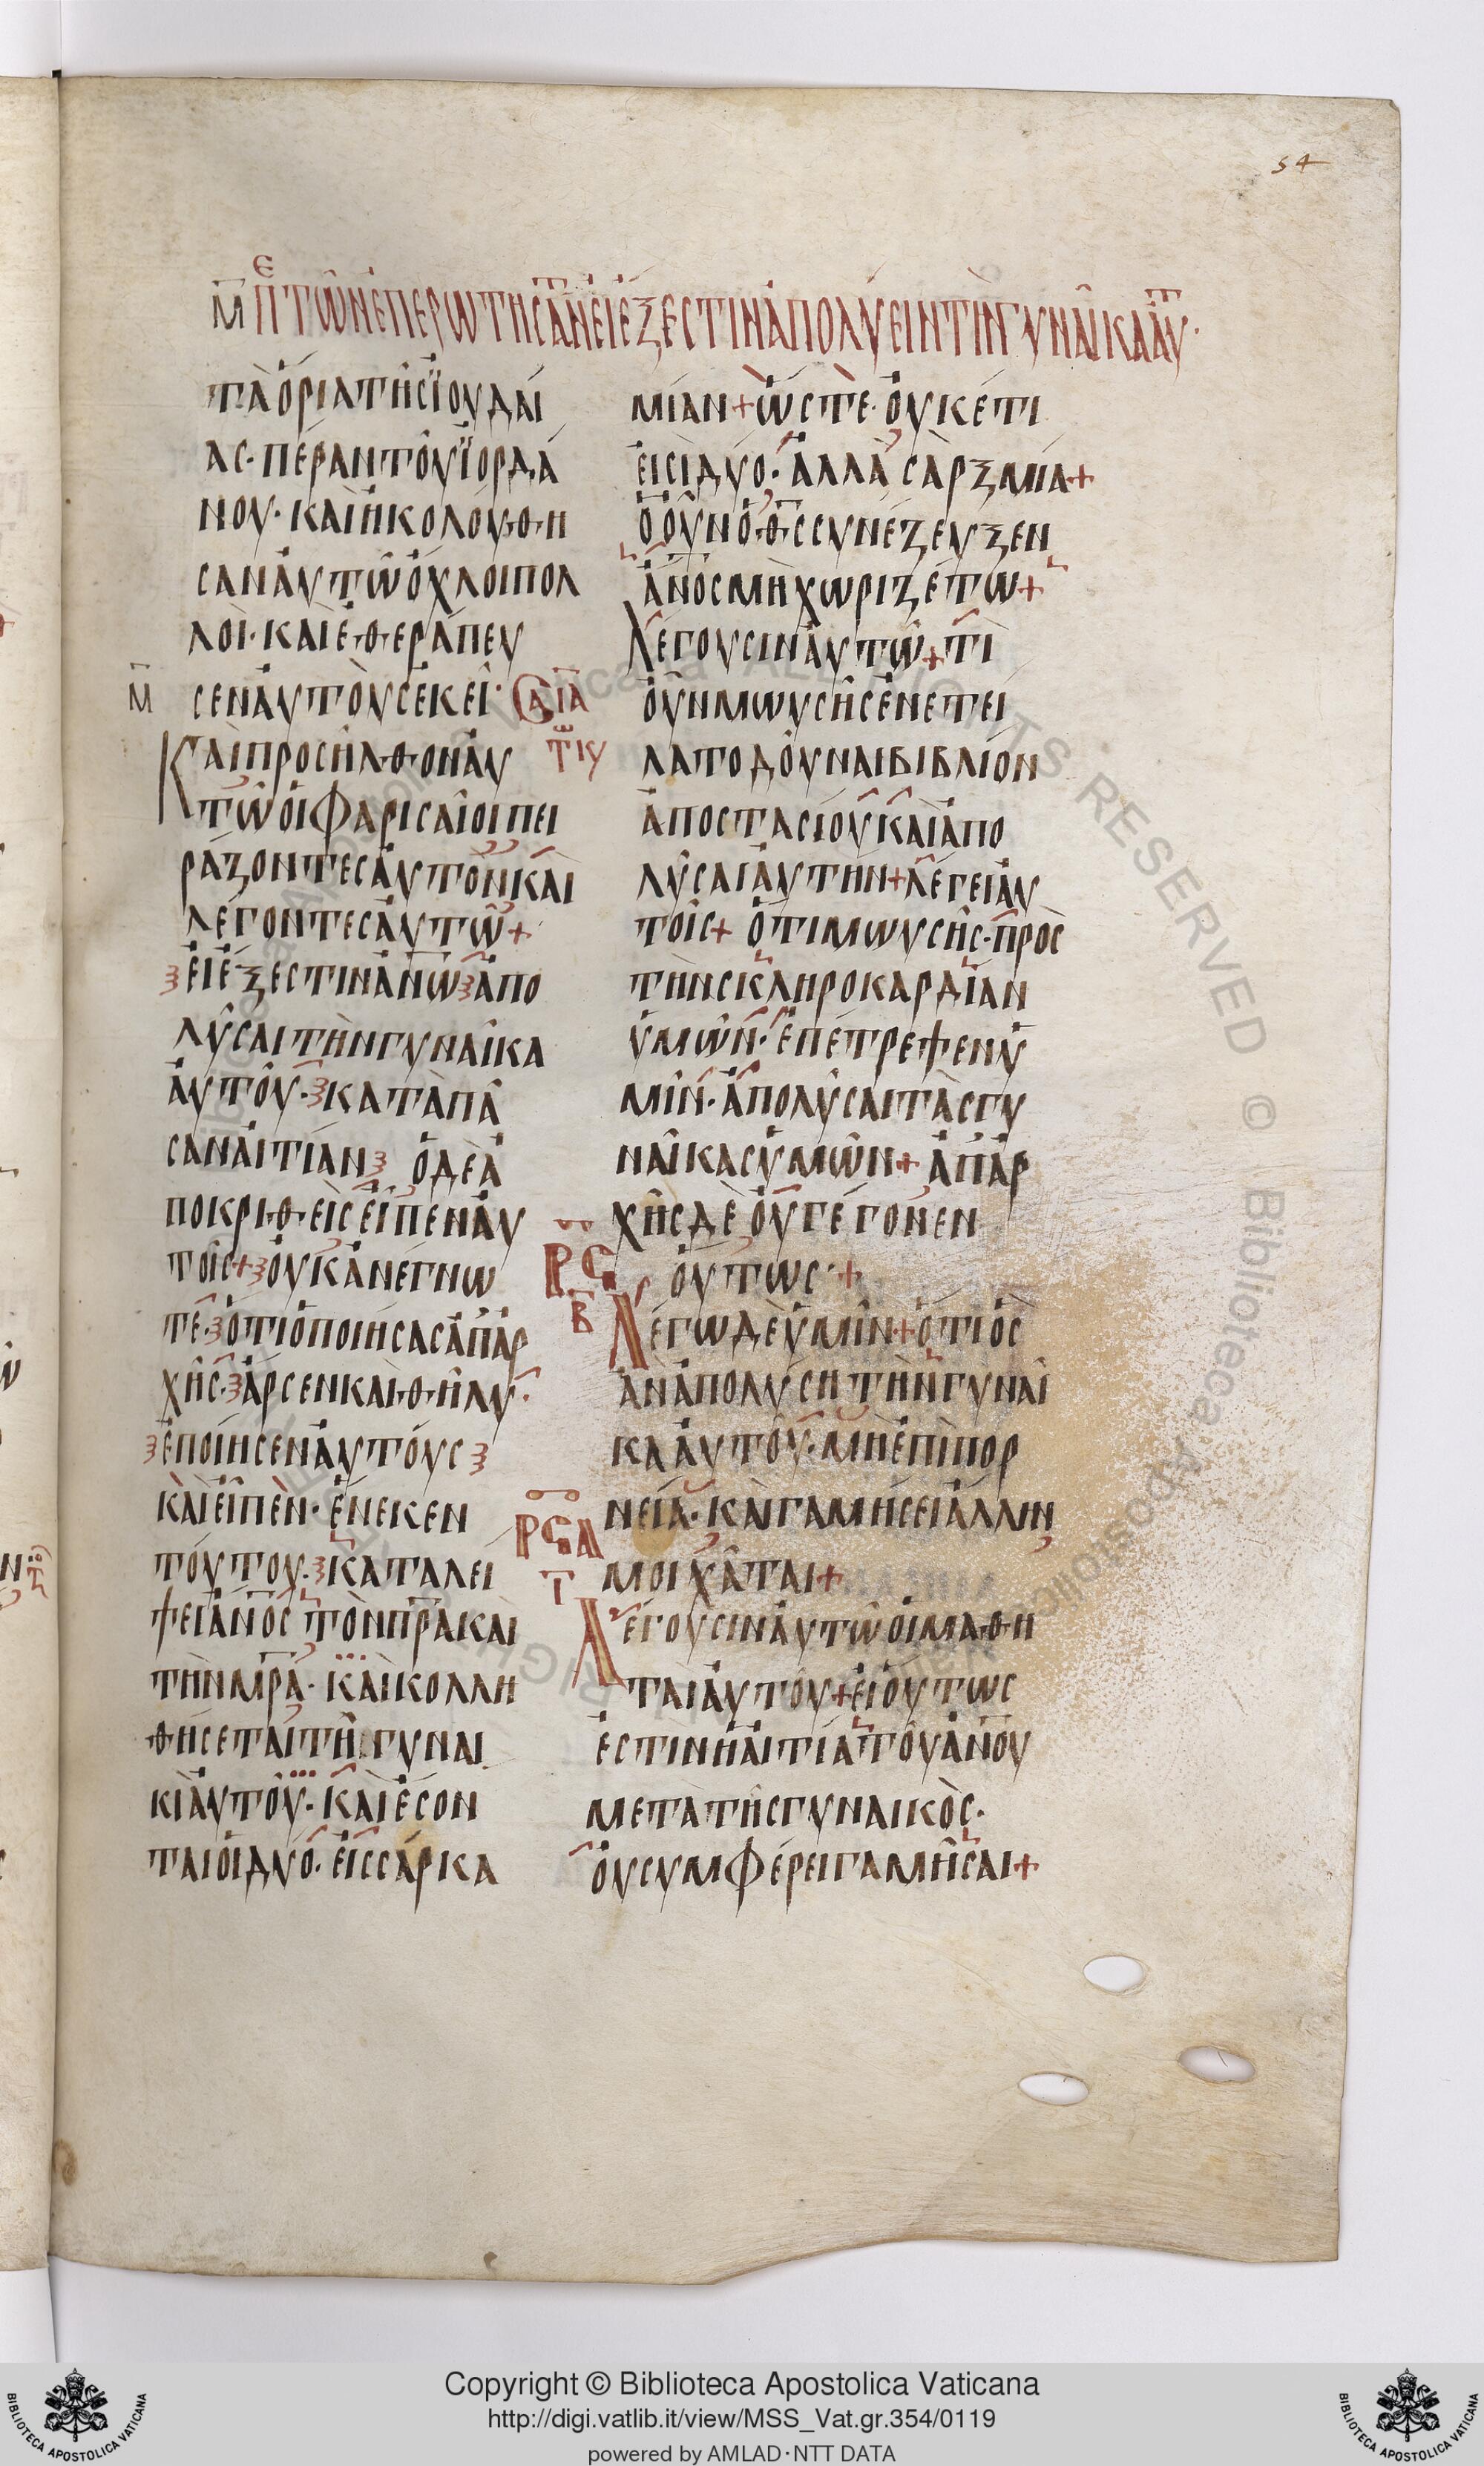 54
Μ ΠΕ ΤΩΝ ΕΠΕΡΩΤΗΣΑΝ ΕΙ ΕΞΕΣΤΙΝ ΑΠΟΛΥΕΙΝ ΤΗΝ ΓΥΝΑΙΚΑ ΑΥΤ·
ΤΑ ΟΡΙΑ ΤΗΣ ΪΟΥΔΑΙ
ΑΣ· ΠΕΡΑΝ ΤΟΥ ΪΟΡΔΑ
ΝΟΥ· ΚΑΙ ΗΚΟΛΟΥΘΗ
ΣΑΝ ΑΥΤΩ ΟΧΛΟΙ ΠΟΛ
ΛΟΙ· ΚΑΙ ΕΘΕΡΑΠΕΥ
Μ ΣΕΝ ΑΥΤΟΥΣ ΕΚΕΙ·
ΚΑΙ ΠΡΟΣΗΛΘΟΝ ΑΥ
ΤΩ ΟΙ ΦΑΡΙΣΑΙΟΙ ΠΕΙ
ΡΑΖΟΝΤΕΣ ΑΥΤΟΝ ΚΑΙ
ΛΕΓΟΝΤΕΣ ΑΥΤΩ+
ΕΙ ΕΞΕΣΤΙΝ ΑΝΩ ΑΠΟ
ΛΥΣΑΙ ΤΗΝ ΓΥΝΑΙΚΑ
ΑΥΤΟΥ· ΚΑΤΑ ΠΑ
ΣΑΝ ΑΙΤΙΑΝ Ο ΔΕ Α
ΠΟΚΡΙΘΕΙΣ ΕΙΠΕΝ ΑΥ
ΤΟΙΣ+ ΟΥΚ ΑΝΕΓΝΩ
ΤΕ· ΟΤΙ Ο ΠΟΙΗΣΑΣ ΑΠ ΑΡ
ΧΗΣ· ΑΡΣΕΝ ΚΑΙ ΘΗΛΥ·
ΕΠΟΙΗΣΕΝ ΑΥΤΟΥΣ
ΚΑΙ ΕΙΠΕΝ· ΕΝΕΚΕΝ
ΤΟΥΤΟΥ· ΚΑΤΑΛΕΙ
ΨΕΙ ΑΝΟΣ ΤΟΝ ΠΡΑ ΚΑΙ
ΤΗΝ ΜΡΑ· ΚΑΙ ΚΟΛΛΗ
ΘΗΣΕΤΑΙ ΤΗ ΓΥΝΑΙ
ΚΙ ΑΥΤΟΥ· ΚΑΙ ΕΣΟΝ
ΤΑΙ ΟΙ ΔΥΟ· ΕΙΣ ΣΑΡΚΑ
ΜΙΑΝ+ ΩΣΤΕ· ΟΥΚΕΤΙ
ΕΙΣΙ ΔΥΟ· ΑΛΛΑ ΣΑΡΞ ΜΙΑ+
Ο ΟΥΝ Ο ΘΣ ΣΥΝΕΖΕΥΞΕΝ
ΑΝΟΣ ΜΗ ΧΩΡΙΖΕΤΩ+
ΛΕΓΟΥΣΙΝ ΑΥΤΩ+ ΤΙ
ΟΥΝ ΜΩΥΣΗΣ ΕΝΕΤΕΙ
ΛΑΤΟ ΔΟΥΝΑΙ ΒΙΒΛΙΟΝ
ΑΠΟΣΤΑΣΙΟΥ ΚΑΙ ΑΠΟ
ΛΥΣΑΙ ΑΥΤΗΝ+ ΛΕΓΕΙ ΑΥ
ΤΟΙΣ+ ΟΤΙ ΜΩΥΣΗΣ· ΠΡΟΣ
ΤΗΝ ΣΚΛΗΡΟΚΑΡΔΙΑΝ
ΥΜΩΝ· ΕΠΕΤΡΕΨΕΝ Υ
ΜΙΝ· ΑΠΟΛΥΣΑΙ ΤΑΣ ΓΥ
ΝΑΙΚΑΣ ΥΜΩΝ+ ΑΠ ΑΡ
ΧΗΣ ΔΕ ΟΥ ΓΕΓΟΝΕΝ
ΟΥΤΩΣ·+
ΛΕΓΩ ΔΕ ΥΜΙΝ+ ΟΤΙ ΟΣ
ΑΝ ΑΠΟΛΥΣΗ ΤΗΝ ΓΥΝΑΙ
ΚΑ ΑΥΤΟΥ· ΜΗ ΕΠΙ ΠΟΡ
ΝΕΙΑ· ΚΑΙ ΓΑΜΗΣΕΙ ΑΛΛΗΝ
ΜΟΙΧΑΤΑΙ+
ΛΕΓΟΥΣΙΝ ΑΥΤΩ ΟΙ ΜΑΘΗ
ΤΑΙ ΑΥΤΟΥ+ ΕΙ ΟΥΤΩΣ
ΕΣΤΙΝ Η ΑΙΤΙΑ ΤΟΥ ΑΝΟΥ
ΜΕΤΑ ΤΗΣ ΓΥΝΑΙΚΟΣ·
ΟΥ ΣΥΜΦΕΡΕΙ ΓΑΜΗΣΑΙ+
Copyright © Biblioteca Apostolica Vaticana
http://digi.vatlib.it/view/MSS_Vat.gr.354/0119
powered by AMLAD·NTT DATA